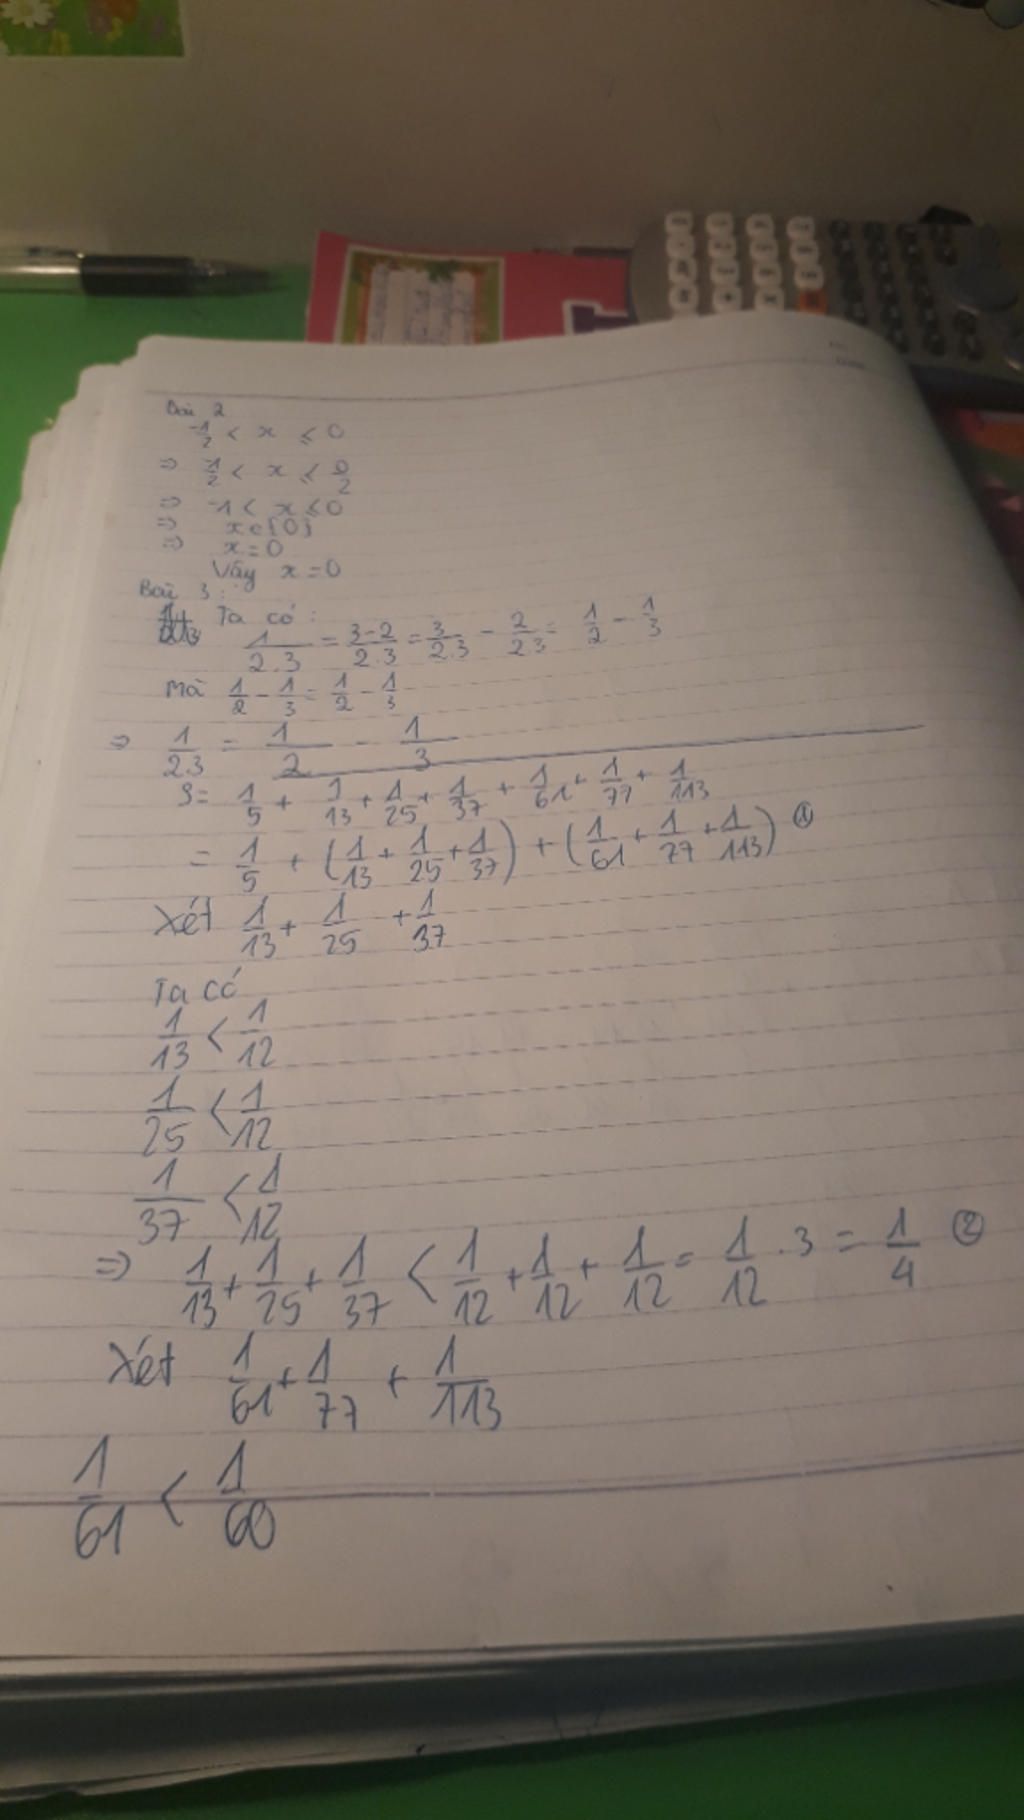 Bài 2
-1/2 < x ≤ 0
=> -1/2 < x ≤ 0/2
=> -1 < x ≤ 0
=> x ∈ {0}
=> x = 0
Vậy x = 0
Bài 3 :
Ta có :
1/2.3 = 3-2/2.3 = 3/2.3 - 2/2.3 = 1/2 - 1/3
Mà 1/2 - 1/3 = 1/2 - 1/3
=> 1/2.3 = 1/2 - 1/3
S = 1/5 + 1/13 + 1/25 + 1/37 + 1/61 + 1/77 + 1/113
= 1/5 + (1/13 + 1/25 + 1/37) + (1/61 + 1/77 + 1/113) ①
Xét 1/13 + 1/25 + 1/37
Ta có
1/13 < 1/12
1/25 < 1/12
1/37 < 1/12
=> 1/13 + 1/25 + 1/37 < 1/12 + 1/12 + 1/12 = 1/12 . 3 = 1/4 ②
Xét 1/61 + 1/77 + 1/113
1/61 < 1/60